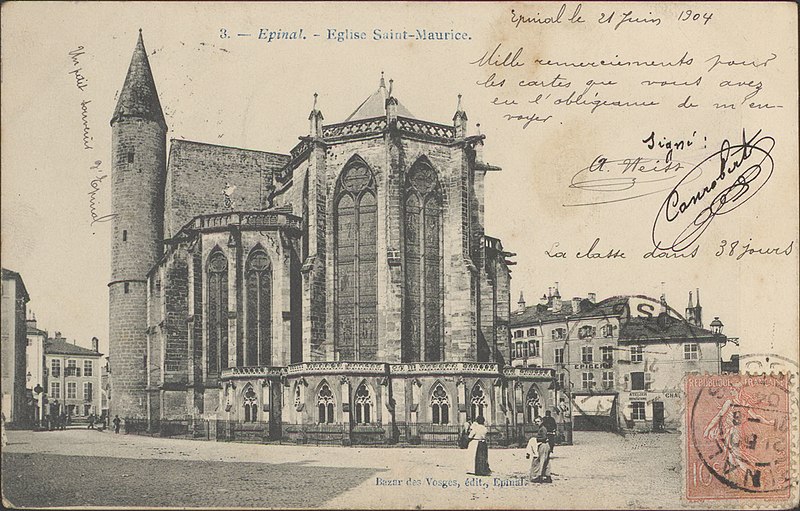 3. — Epinal. - Eglise Saint-Maurice.
Epinal le 21 Juin 1904
Mille remerciements pour
les cartes que vous avez
eu l'obligeance de m'en-
voyer.
Signé:
A. Weiss
Canrobert
La classe dans 38 jours
Un petit souvenir d'Epinal.
EPICERIE
Bazar des Vosges, édit., Epinal.
10